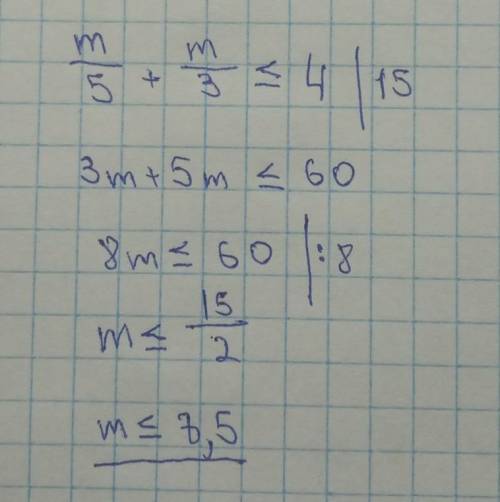 m/5 + m/3 ≤ 4 | 15
3m + 5m ≤ 60
8m ≤ 60 | : 8
m ≤ 15/2
m ≤ 7,5